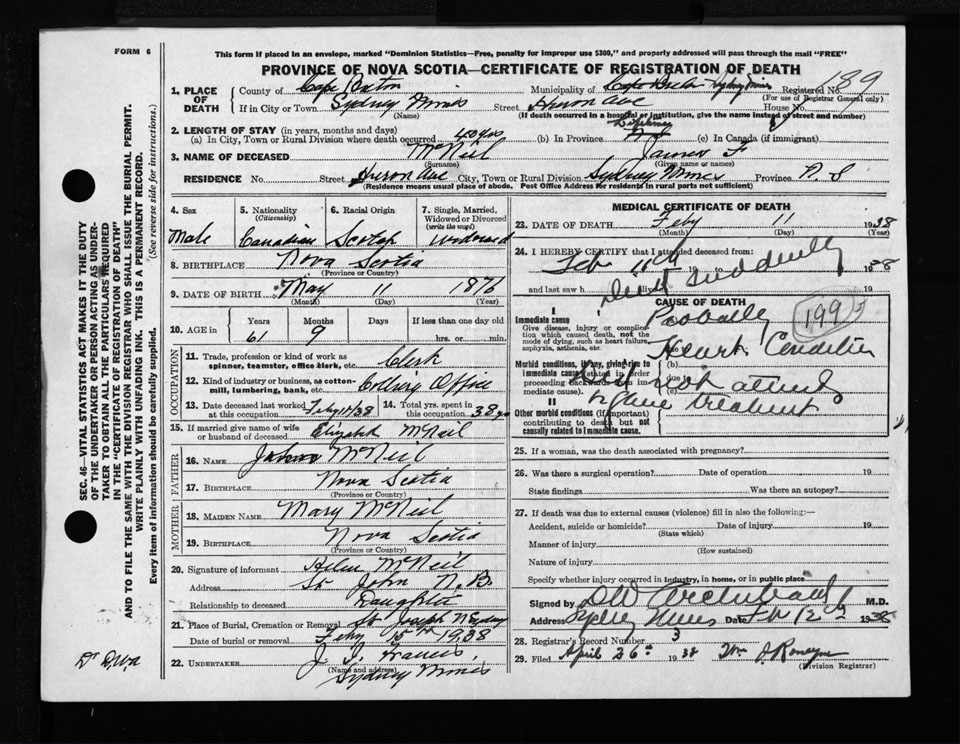 FORM 6
This form if placed in an envelope, marked "Dominion Statistics—Free, penalty for improper use $300," and properly addressed will pass through the mail "FREE"
PROVINCE OF NOVA SCOTIA—CERTIFICATE OF REGISTRATION OF DEATH
1. PLACE OF DEATH County of Cape Breton Municipality of Cape Breton Sydney Mines Registered No. 189
(For use of Registrar General only)
If in City or Town Sydney Mines Street Huron Ave House No.
(Name) (If death occurred in a hospital or institution, give the name instead of street and number)
2. LENGTH OF STAY (in years, months and days)
(a) In City, Town or Rural Division where death occurred 40 yrs (b) In Province (c) In Canada (if immigrant)
3. NAME OF DECEASED McNeil James F
(Surname) (Given name or names)
RESIDENCE No. Street Huron Ave City, Town or Rural Division Sydney Mines Province N. S
(Residence means usual place of abode. Post Office Address for residents in rural parts not sufficient)
SEC. 46—VITAL STATISTICS ACT MAKES IT THE DUTY
OF THE UNDERTAKER OR PERSON ACTING AS UNDER-
TAKER TO OBTAIN ALL THE PARTICULARS REQUIRED
IN THE "CERTIFICATE OF REGISTRATION OF DEATH"
AND TO FILE THE SAME WITH THE DIVISION REGISTRAR WHO SHALL ISSUE THE BURIAL PERMIT.
WRITE PLAINLY WITH UNFADING INK. THIS IS A PERMANENT RECORD.
Every item of information should be carefully supplied. (See reverse side for instructions.)
4. Sex 5. Nationality 6. Racial Origin 7. Single, Married,
(Citizenship) Widowed or Divorced
(write the word)
Male Canadian Scotch Widowed
8. BIRTHPLACE Nova Scotia
(Province or Country)
9. DATE OF BIRTH May 11 1876
(Month) (Day) (Year)
10. AGE in Years Months Days If less than one day old
61 9 hrs. or min.
OCCUPATION
11. Trade, profession or kind of work as
spinner, teamster, office clerk, etc. Clerk
12. Kind of industry or business, as cotton-
mill, lumbering, bank, etc. Colliery Office
13. Date deceased last worked
at this occupation Feby 11/38 14. Total yrs. spent in
this occupation 38 yrs
15. If married give name of wife
or husband of deceased Elizabeth McNeil
FATHER
16. NAME McNeil
17. BIRTHPLACE Nova Scotia
(Province or Country)
MOTHER
18. MAIDEN NAME Mary McNeil
19. BIRTHPLACE Nova Scotia
(Province or Country)
20. Signature of informant Helen McNeil
Address St John N. B.
Relationship to deceased Daughter
21. Place of Burial, Cremation or Removal St Joseph N Sydney
Date of burial or removal Feby 15th 1938
22. UNDERTAKER J. Francis,
(Name and address) Sydney Mines
MEDICAL CERTIFICATE OF DEATH
23. DATE OF DEATH Feby 11 1938
(Month) (Day) (Year)
24. I HEREBY CERTIFY that I attended deceased from:
Feb 11th 19 to 1938
and last saw h alive on 19
Died suddenly
CAUSE OF DEATH
199
I
Immediate cause
Give disease, injury or complica-
tion which caused death, not the
mode of dying, such as heart failure,
asphyxia, asthenia, etc.
Probably
Heart Condition
Morbid conditions, if any, giving rise to
immediate cause (stated in order
proceeding backwards from im-
mediate cause).
(b)
due to
(c)
Did not attend
or give treatment
II
Other morbid conditions (if important)
contributing to death but not
causally related to immediate cause.
25. If a woman, was the death associated with pregnancy?
26. Was there a surgical operation? Date of operation 19
State findings Was there an autopsy?
27. If death was due to external causes (violence) fill in also the following:—
Accident, suicide or homicide? Date of injury 19
(State which)
Manner of injury
(How sustained)
Nature of injury
Specify whether injury occurred in industry, in home, or in public place
Signed by DW Archibald M.D.
Address Sydney Mines Date Feb 12 1938
28. Registrar's Record Number 3
29. Filed April 26th 1938 Wm
(Division Registrar)